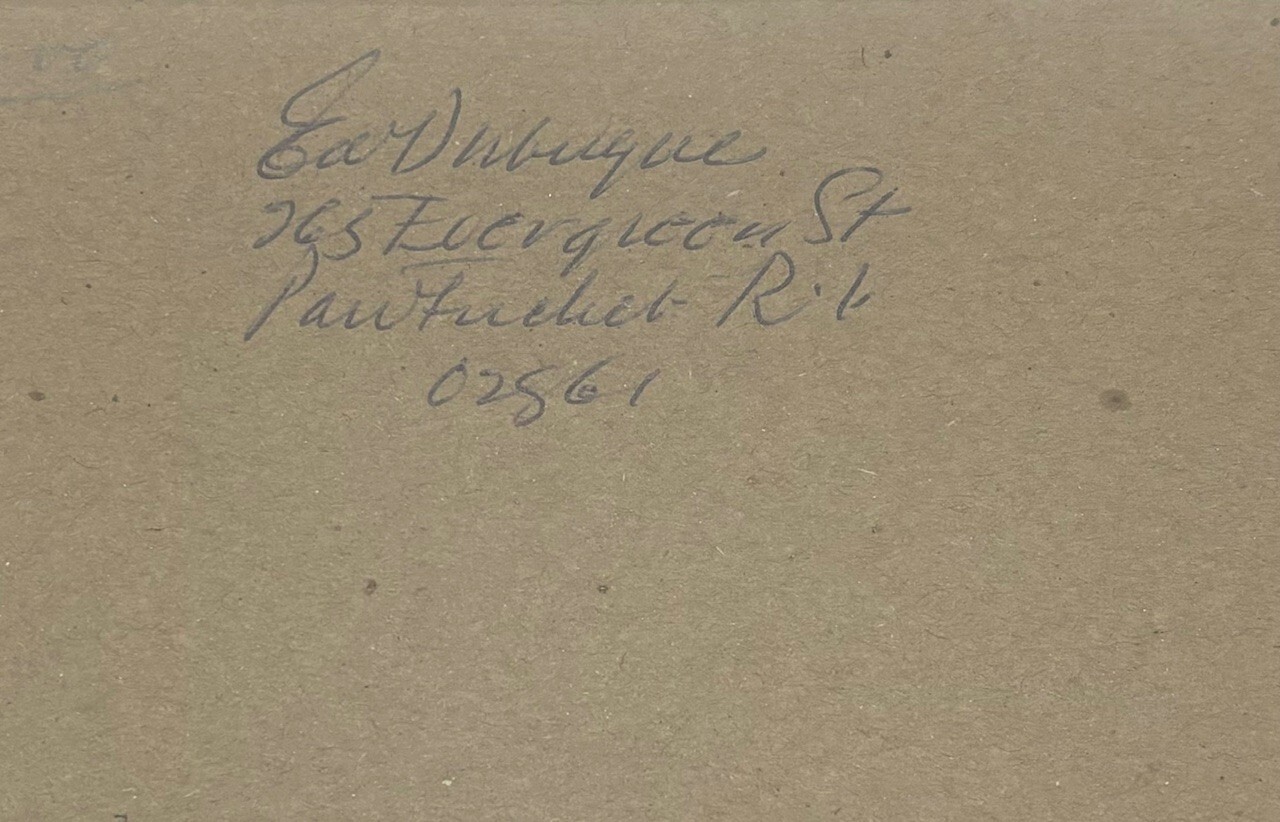 Ed Dubuque
265 Evergreen St
Pawtucket R.I
02861